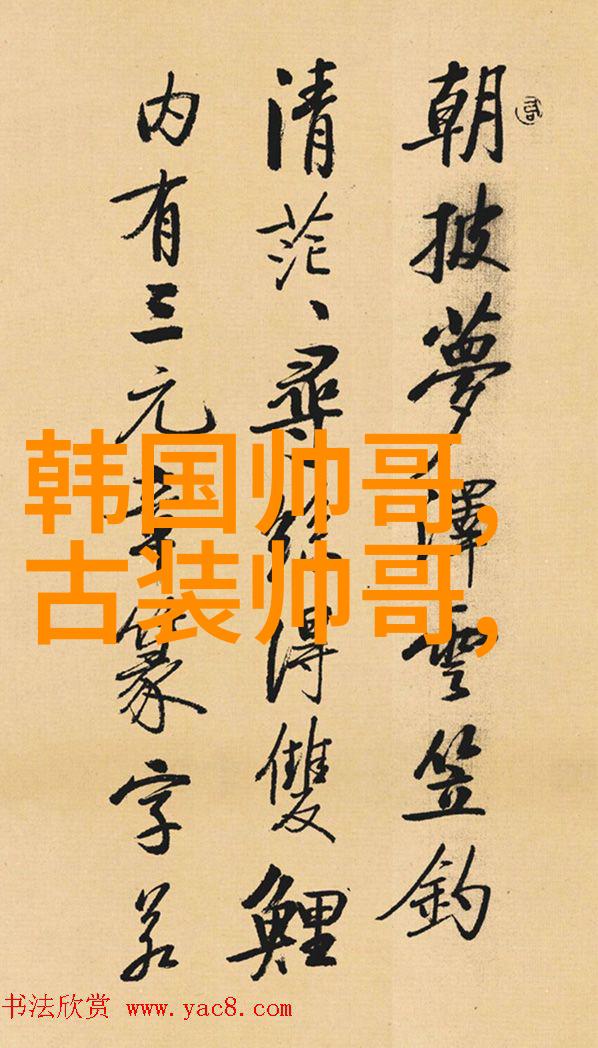 朝披夢澤雲笠釣
清茫、尋絲得雙鯉
内有三元章篆字若
韩国帅哥,
古装帅哥,
书法欣赏 www.yac8.com